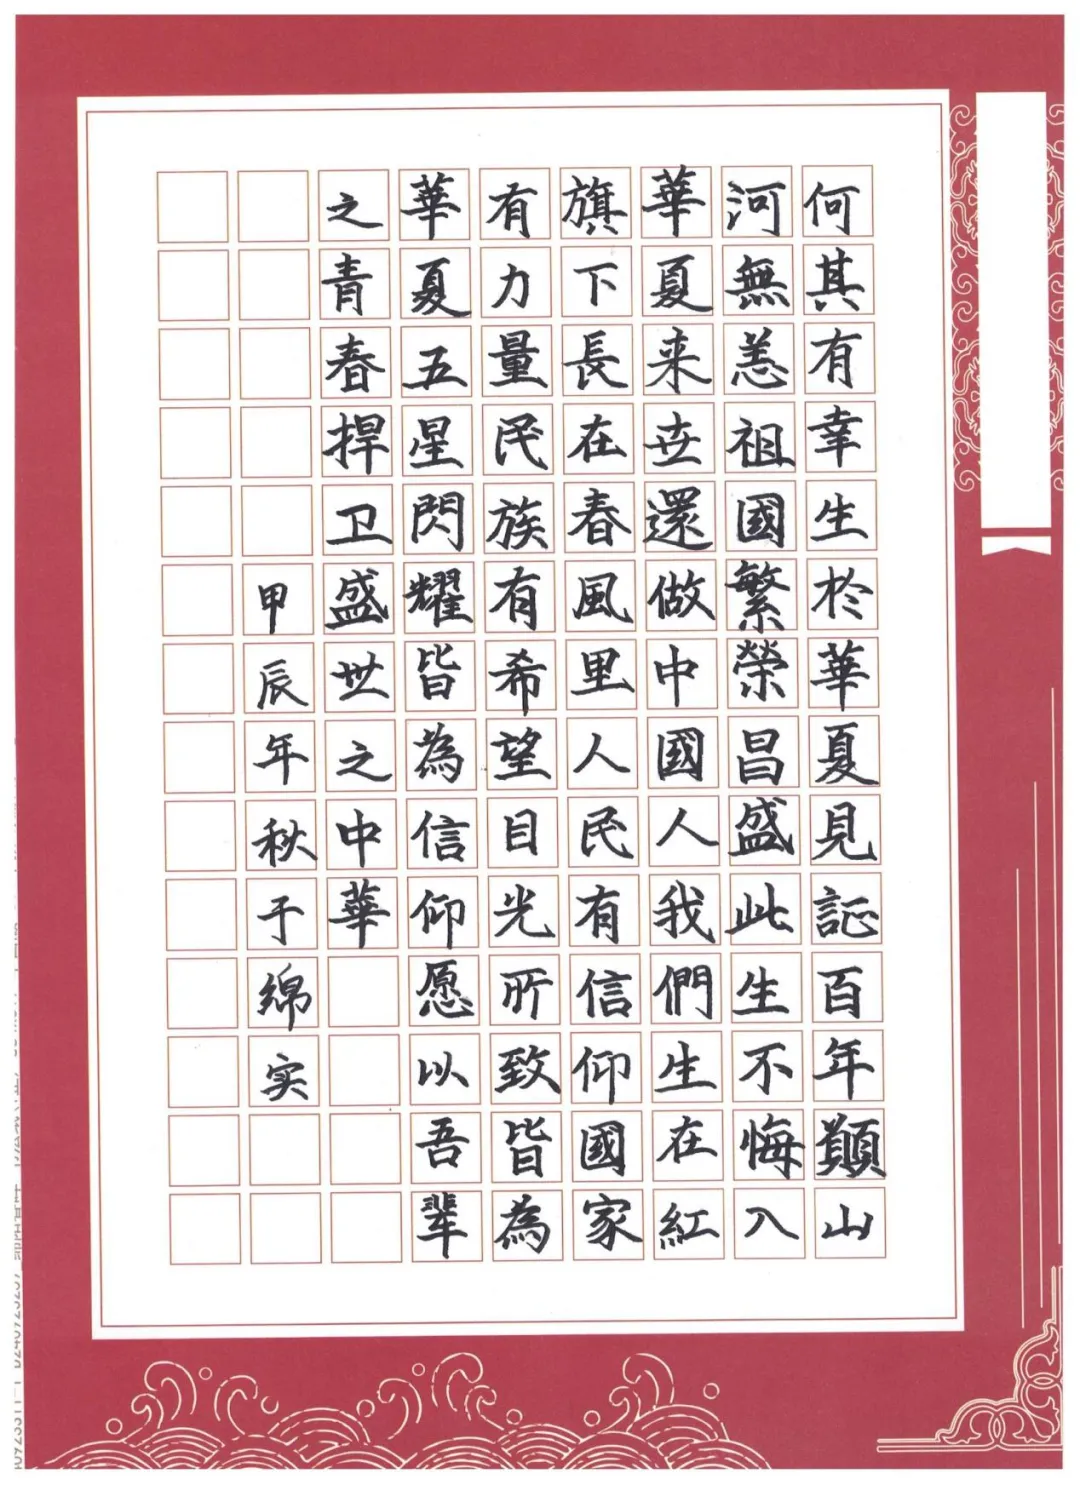 何其有幸生於華夏見証百年顛山
河無恙祖國繁榮昌盛此生不悔入
華夏来世還做中國人我們生在紅
旗下長在春風里人民有信仰國家
有力量民族有希望目光所致皆為
華夏五星閃耀皆為信仰愿以吾輩
之青春捍卫盛世之中華
甲辰年秋于綿实